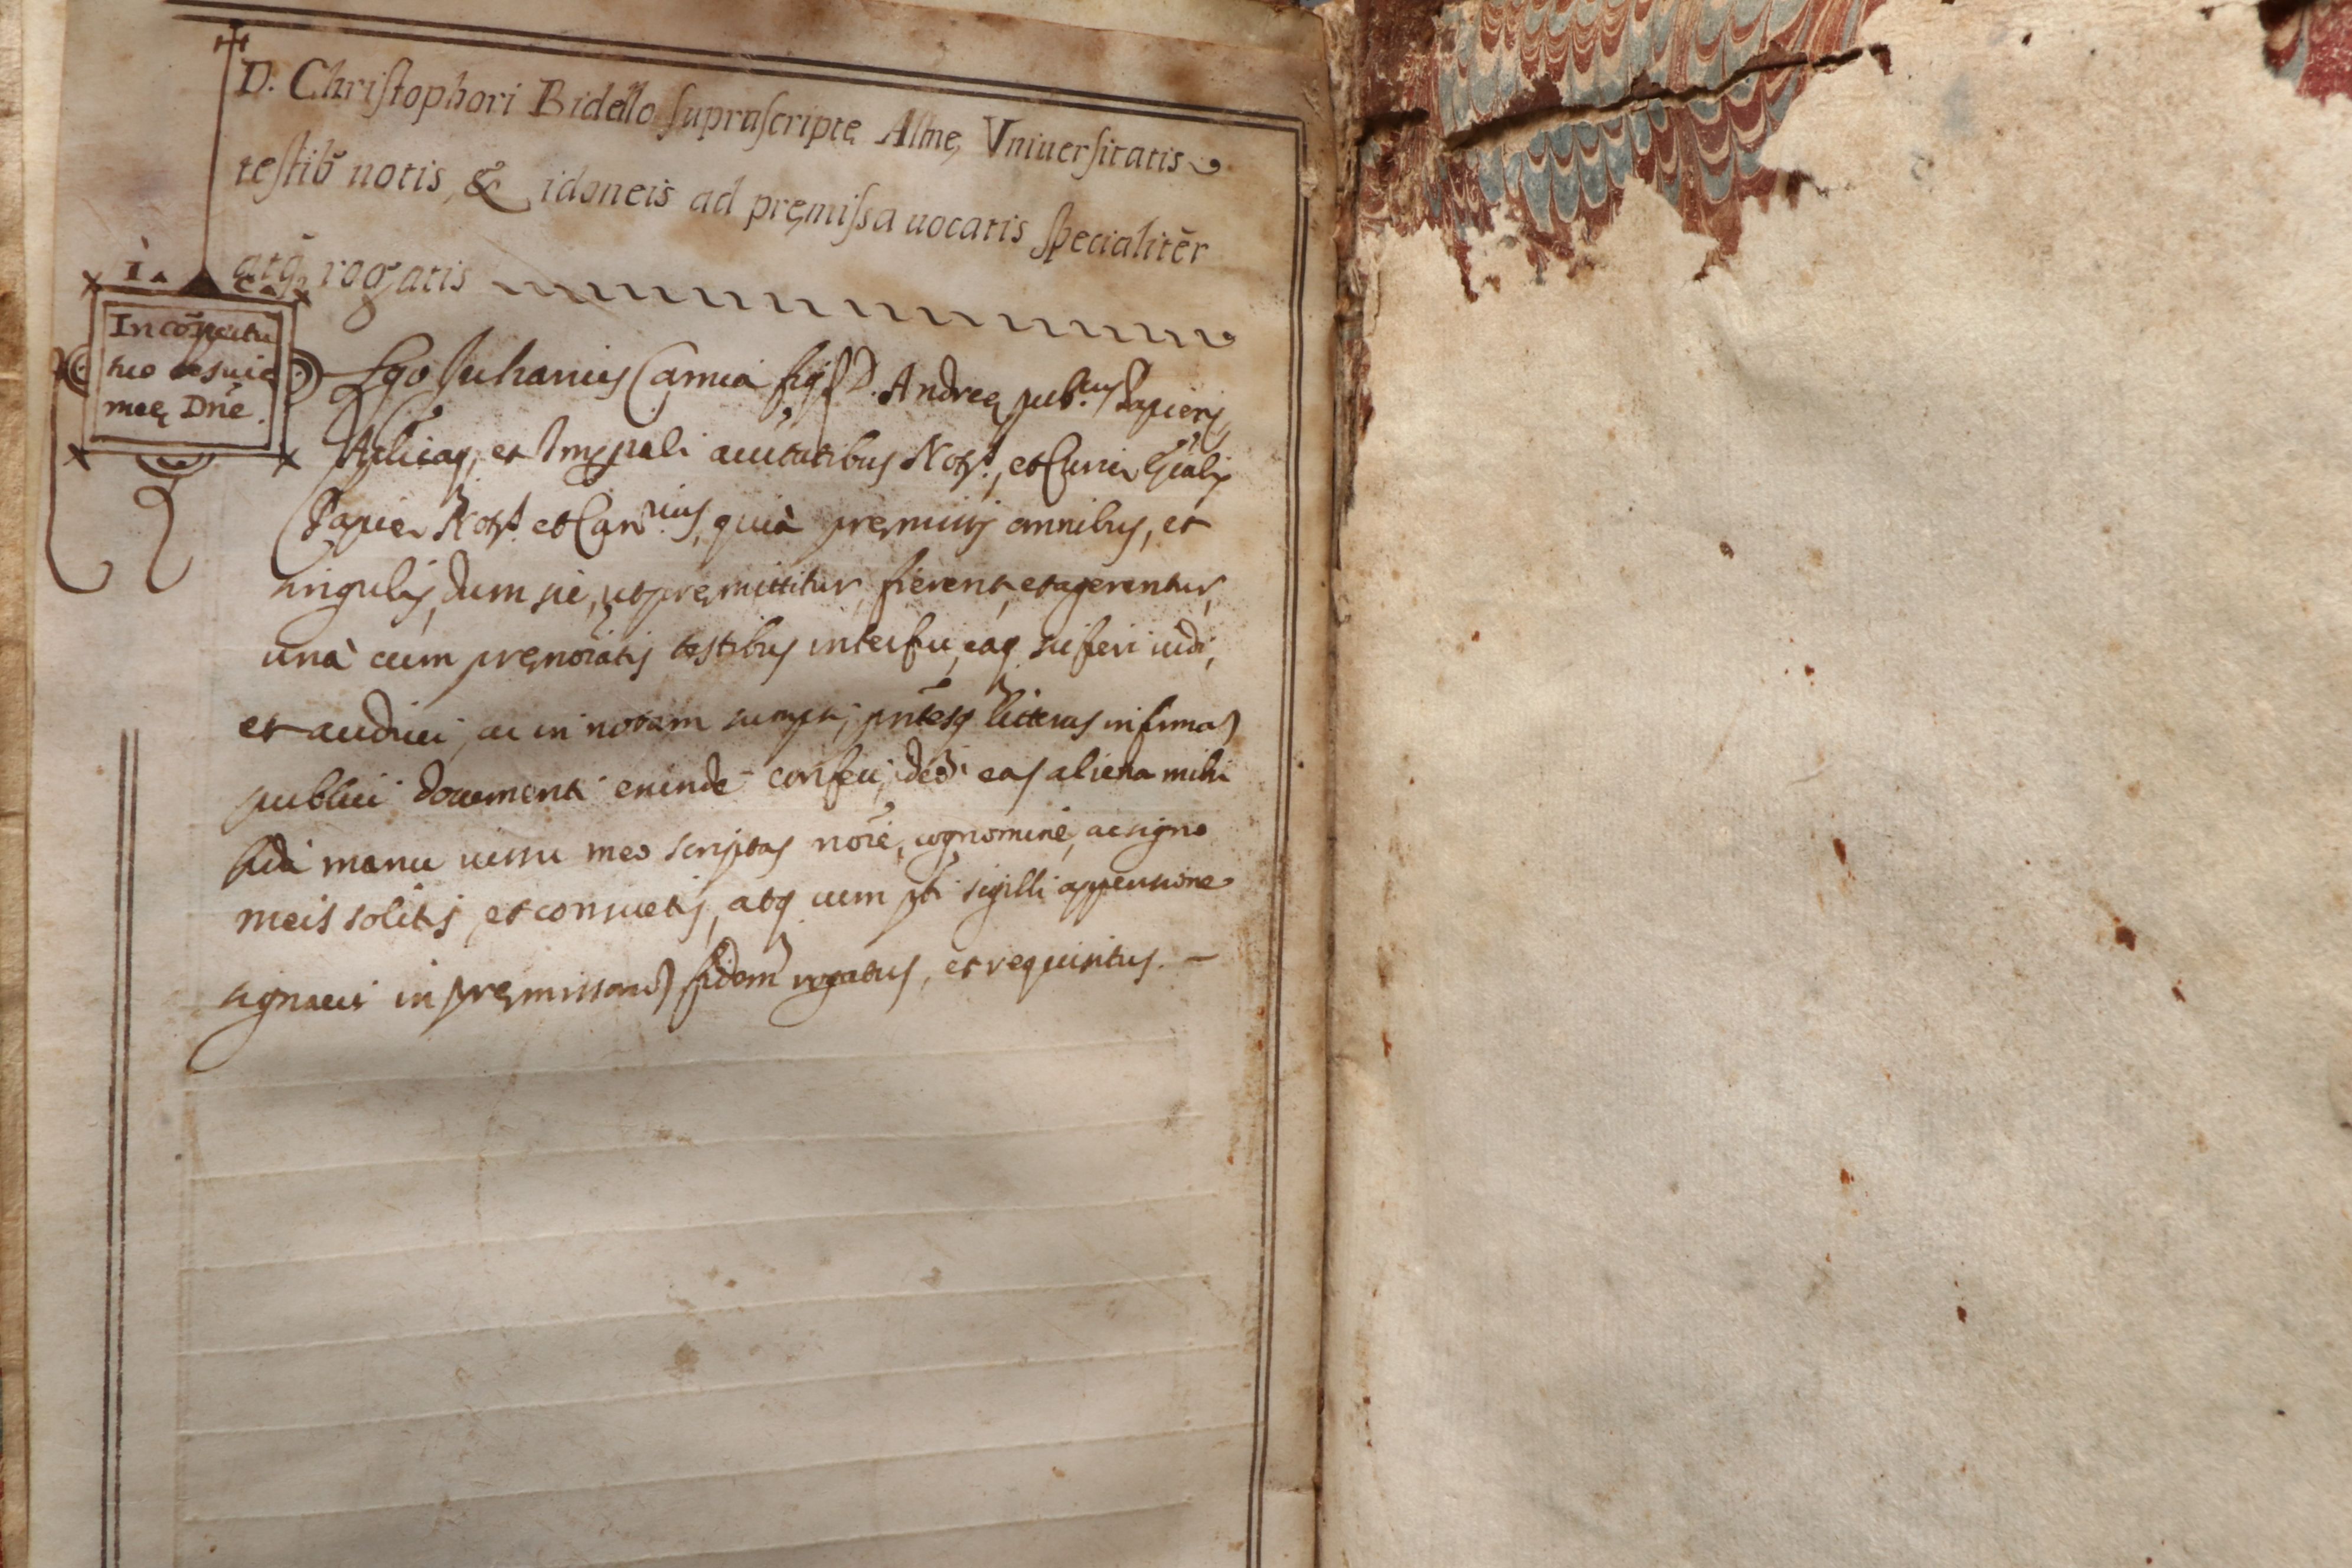 D. Chriſtophori Bidello ſupraſcriptę Almę Vniuerſitatis
teſtib' notis, & idoneis ad pręmiſſa uocatis ſpecialitēr
atq; rogatis
I. C.
In cōspectu
tuo
meę Dn̄e.
Ego Camia D. Andreę pub.cus Papien
et Imp̱iali auctͭatibus Not.s, et Curię
Papię Not.s et Can.rius, quià pręmissis omnibus, et
singulis, dum sic, ut pręmittitur, fierent, et agerentur,
unà cum pręnoīatis testibus interfui, eaq; sic fieri uidi,
et audiui, ac in notam sumpsi, pn̄tesq; litteras in formam
publici documenti exinde confeci, ideò eas aliena mihi
fida manu iussu meo scriptas noīe, cognomine, ac signo
meis solitis, et consuetis, atq; cum sigilli appensione
signaui in pręmissorum fidem rogatus, et requisitus. –